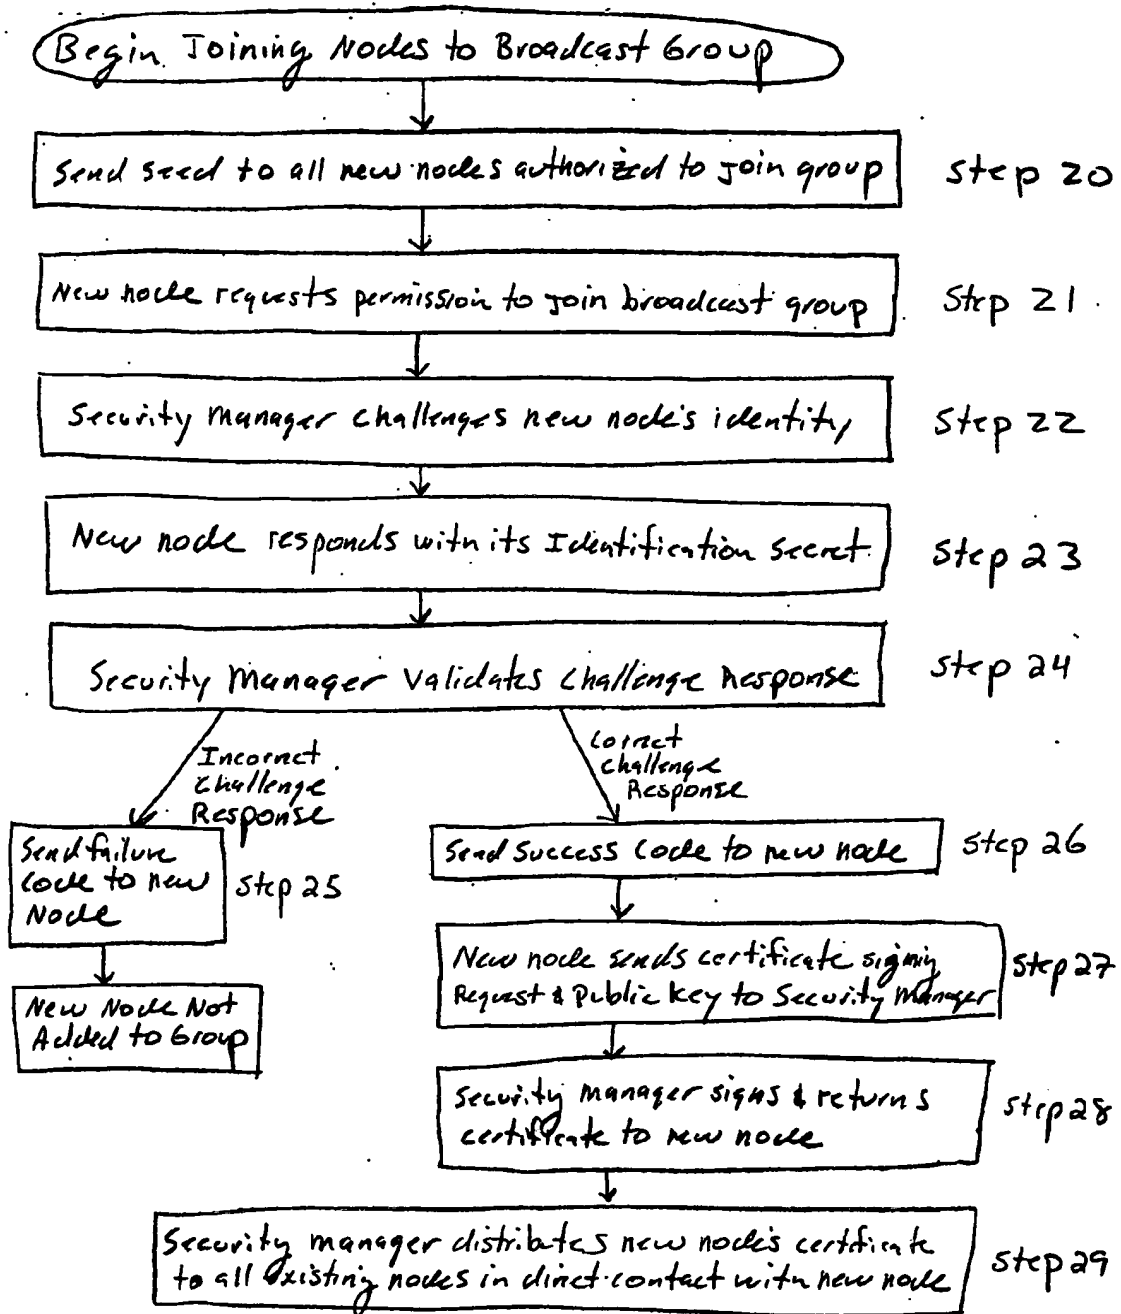 Begin Joining Nodes to Broadcast Group
Send seed to all new nodes authorized to join group
Step 20
New node requests permission to join broadcast group
Step 21
Security Manager challenges new node's identity
Step 22
New node responds with its Identification Secret
Step 23
Security Manager Validates Challenge Response
Step 24
Incorrect
Challenge
Response
Correct
Challenge
Response
Send failure
Code to new
Node
Step 25
Send Success Code to new node
Step 26
New Node Not
Added to Group
New node sends certificate signing
Request & Public Key to Security Manager
Step 27
Security manager signs & returns
certificate to new node
Step 28
Security manager distributes new node's certificate
to all existing nodes in direct contact with new node
Step 29